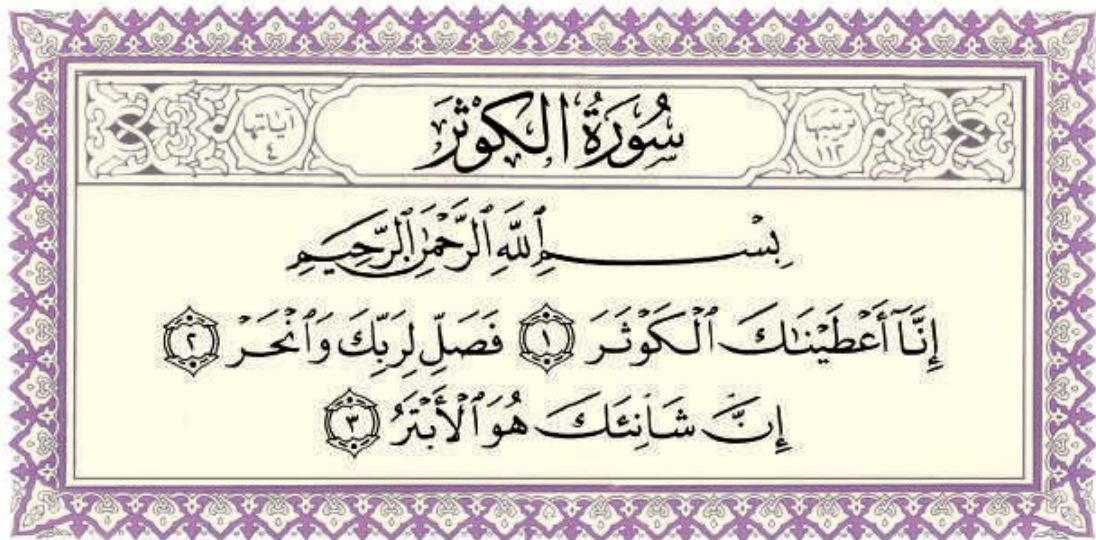 ترتيبها
١١٢
سُورَةُ الكَوْثَرَ
آياتها
٤
بِسْمِ ٱللَّهِ ٱلرَّحْمَٰنِ ٱلرَّحِيمِ
إِنَّآ أَعْطَيْنَٰكَ ٱلْكَوْثَرَ ۝١ فَصَلِّ لِرَبِّكَ وَٱنْحَرْ ۝٢
إِنَّ شَانِئَكَ هُوَ ٱلْأَبْتَرُ ۝٣